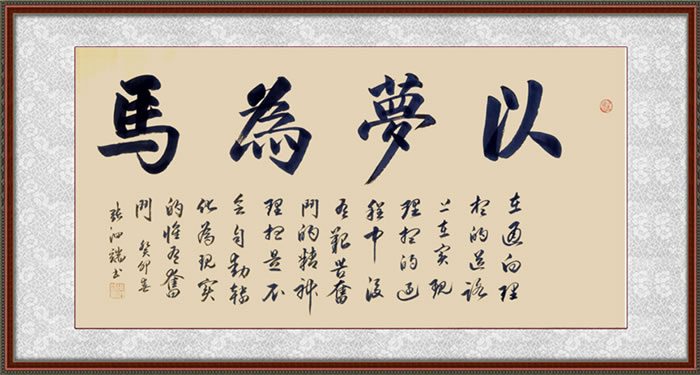 以夢為馬
在通向理
想的道路
上在实現
理想的过
程中没
有艱苦奮
鬥的精神
理想是不
会自動轉
化為現实
的惟有奮
鬥 癸卯春
張泗书